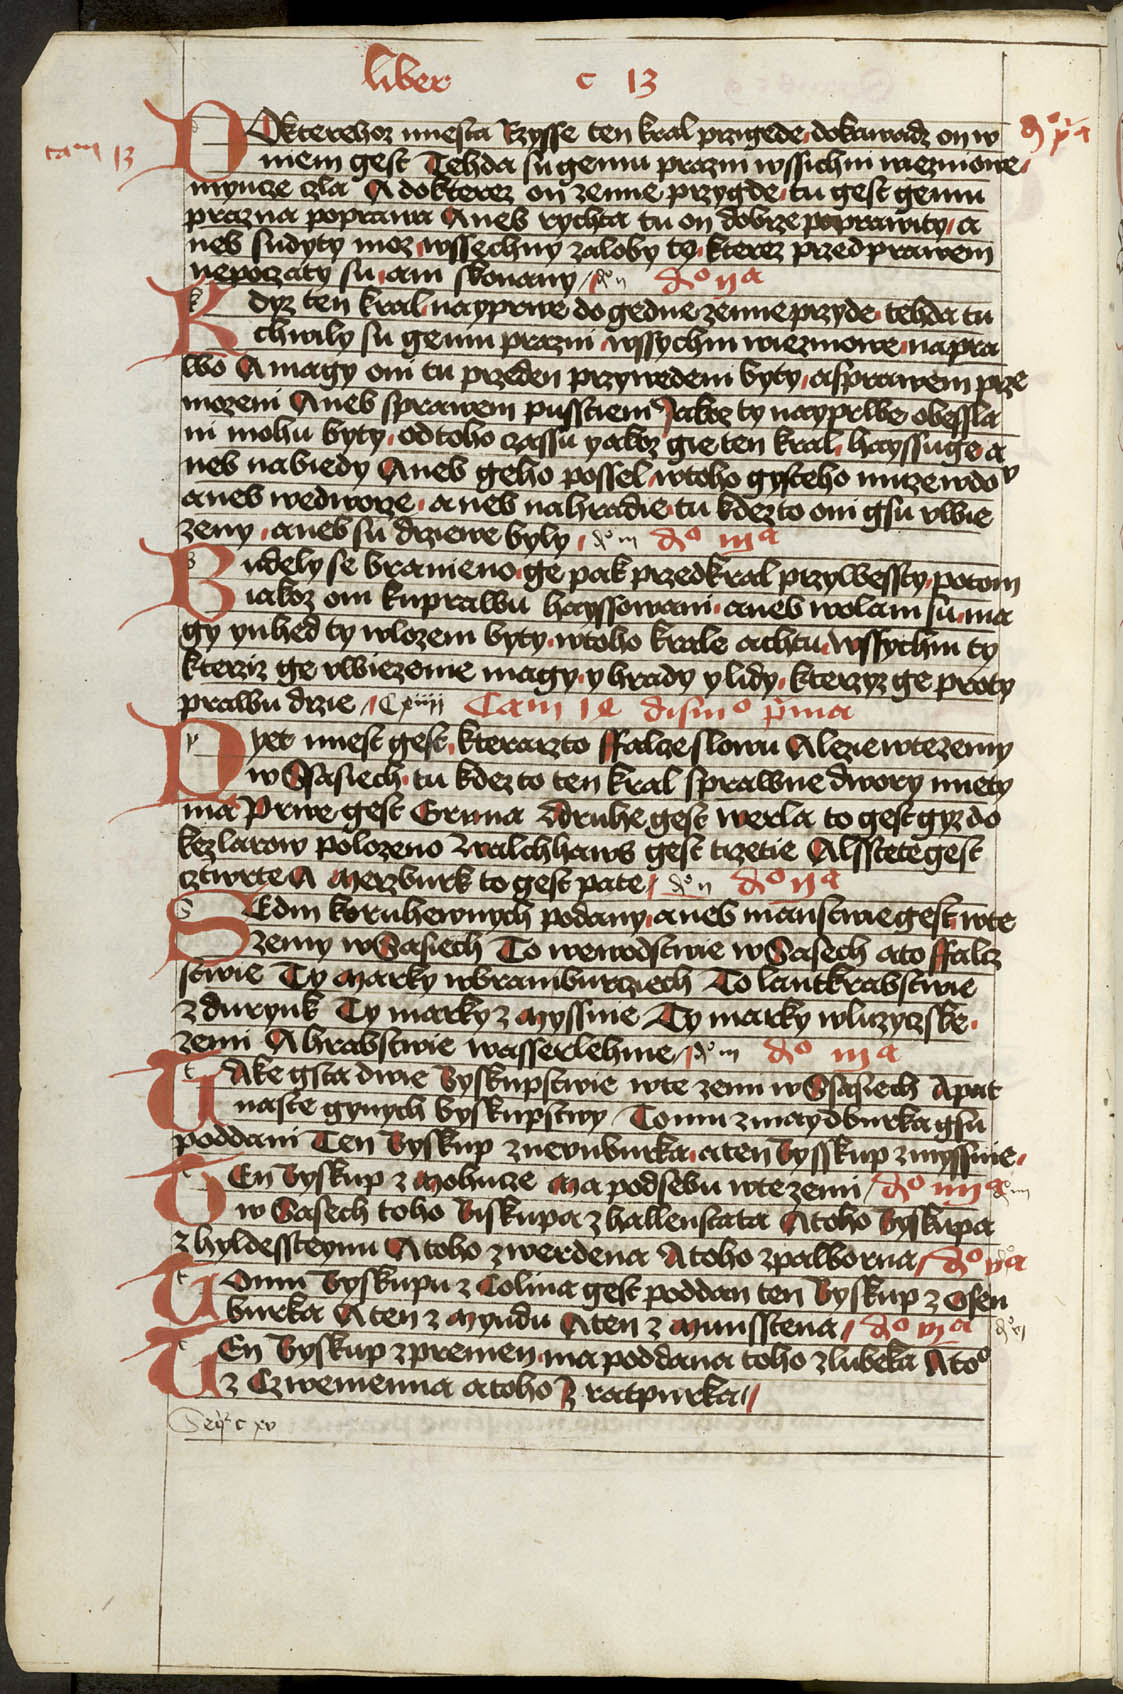 liber c 13
Dokterehoz miesta Rzysse ten kral przigede dokawadz on w
cam 13
niem gest Tehda su gemu prazni wssichni wiezniowe
myncze czla A dokterez on zemie przygde tu gest gemu
prazna poprawa Aneb rychta tu on dobrze poprawity a
neb sudyty moz wssechny zaloby te kterez przed prawem
nepoczaty su ani skonany do ii do ii a
Kdyz ten kral nayprwe do gedne zemie przyde tehda tu
chwily su gemu prazni wssychni wiezniowe na pra
wo A magy oni tu przeden przywedeni byty a sprawem prze
mozeni Aneb sprawem pusstieni Jakoz ty nayprwe obessla
ni mohu byty od toho czassu yakoz gie ten kral hayssuge a
neb nabiedy Aneb geho possel wtoho gysteho muze wdo
aneb wedworze aneb nahradie tu kdezto oni gsu vwie
zeny aneb su drziewe byly do iii do iii a
Budely se branieno ge pak przed kral przywessty potom
iakoz oni kuprawu hayssowani aneb wolani su ma
gy ynhed ty wlozeni byty wtoho krale achtu wssychni ty
kterziz ge vwiezenie magy y hrady y lidy kterzyz ge proty
prawu drzie C xiiii Cam 14 disino prima
Pyet miest gest kterazto ffalcze slowu A lezie wte zemy
w Ssasiech tu kdezto ten kral sprawne dwory miety
ma Prwe gest Gruna A druhe gest werla to gest gyz do
kezlarow polozeno walchhaws gest trzetie Alsstete gest
cztwrte A Merzburk to gest pate do ii do ii a
Sedm koruhewnych podany aneb manstwie gest wte
zemy w Sasiech To wewodstwie w Sasech a to ffalcz
stwie Ty Marky wbramburziech To lantkrabstwie
z durynk Ty marky z Myssnie Ty marky wluzyczske
zemi A hrabstwie wasserlehnie do iii do iii a
Take gsta dwie Byskupstwie wte zemi w Ssasiech A pat
naste gynych byskupstwy Tomu z maydburka gsu
poddani Ten Byskup z neunburka a ten Bysskup z myssnie
Ten Byskup z Mohucze Ma podsebu wte zemi do iiii a
w Sasech toho Biskupa z hallenstata A toho Byskupa
z hyldessteynu A toho z werdena A toho z palborna do v a
Tomu Byskupu z Colina gest poddan ten Byskup z Osen
burka A ten z Myndu A ten z Munsstena do vi a
Ten Byskup z premen ma poddana toho z lubeka A too
z Czweniema a toho z ratpurka
Seqr c xv